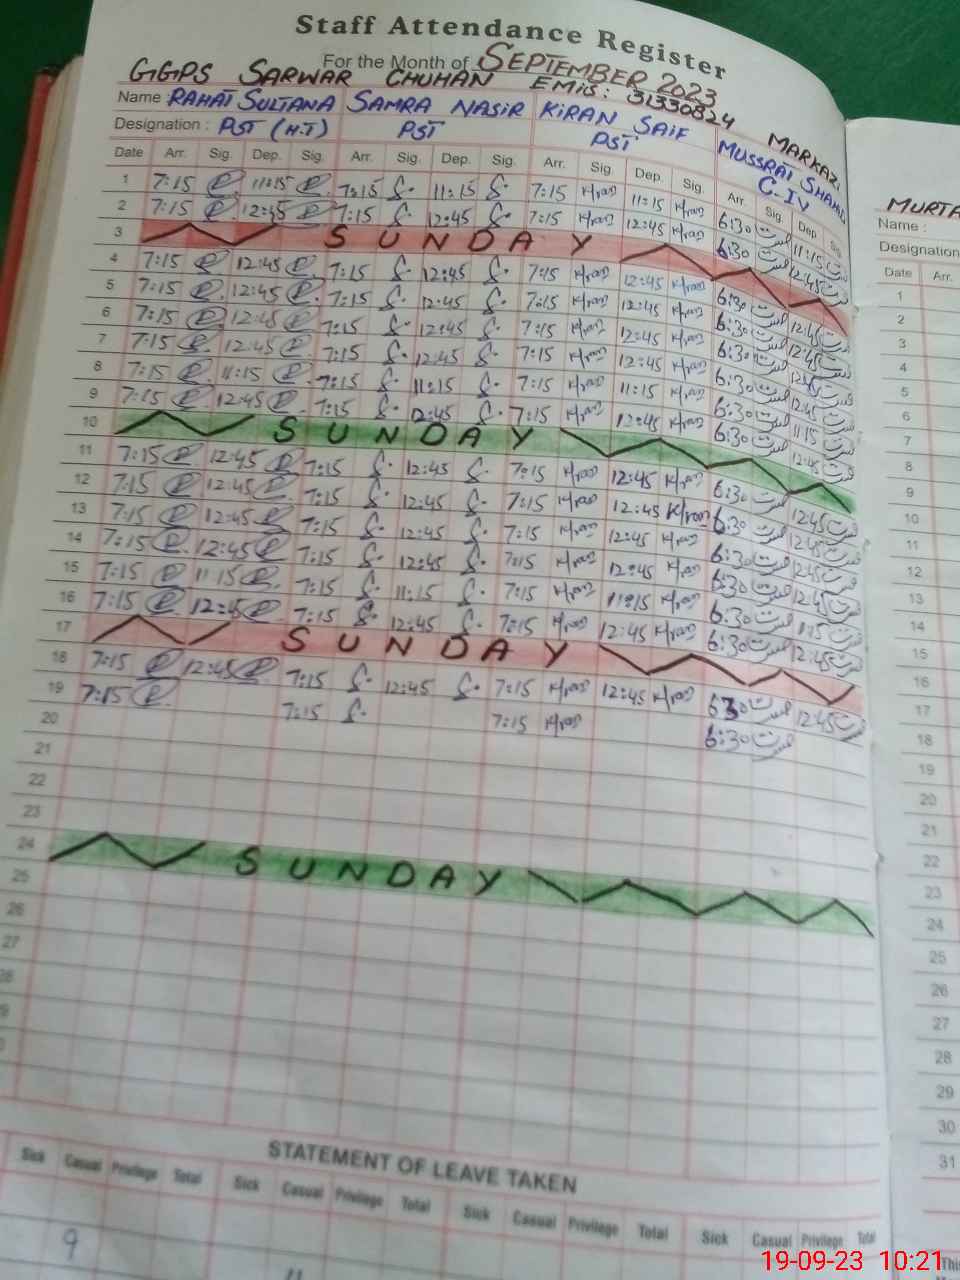 Staff Attendance Register
For the Month of SEPTEMBER 2023
GGPS SARWAR CHUHAN EMIS: 31330824 MARKAZ:
Name : RAHAT SULTANA SAMRA NASIR KIRAN SAIF MUSSRAT SHAHID
Designation : PST (H.T) PST PST C-IV
Date Arr. Sig. Dep. Sig. Arr. Sig. Dep. Sig. Arr. Sig. Dep. Sig. Arr. Sig. Dep.
1 7:15 11:15 7:15 11:15 7:15 Kiran 11:15 Kiran 6:30 مسرت 11:15 مسرت
2 7:15 12:45 7:15 12:45 7:15 Kiran 12:45 Kiran 6:30 مسرت 12:45 مسرت
3 SUNDAY
4 7:15 12:45 7:15 12:45 7:15 Kiran 12:45 Kiran 6:30 مسرت 12:45 مسرت
5 7:15 12:45 7:15 12:45 7:15 Kiran 12:45 Kiran 6:30 مسرت 12:45 مسرت
6 7:15 12:45 7:15 12:45 7:15 Kiran 12:45 Kiran 6:30 مسرت 12:45 مسرت
7 7:15 12:45 7:15 12:45 7:15 Kiran 12:45 Kiran 6:30 مسرت 12:45 مسرت
8 7:15 11:15 7:15 11:15 7:15 Kiran 11:15 Kiran 6:30 مسرت 11:15 مسرت
9 7:15 12:45 7:15 12:45 7:15 Kiran 12:45 Kiran 6:30 مسرت 12:45 مسرت
10 SUNDAY
11 7:15 12:45 7:15 12:45 7:15 Kiran 12:45 Kiran 6:30 مسرت 12:45 مسرت
12 7:15 12:45 7:15 12:45 7:15 Kiran 12:45 Kiran 6:30 مسرت 12:45 مسرت
13 7:15 12:45 7:15 12:45 7:15 Kiran 12:45 Kiran 6:30 مسرت 12:45 مسرت
14 7:15 12:45 7:15 12:45 7:15 Kiran 12:45 Kiran 6:30 مسرت 12:45 مسرت
15 7:15 11:15 7:15 11:15 7:15 Kiran 11:15 Kiran 6:30 مسرت 11:15 مسرت
16 7:15 12:45 7:15 12:45 7:15 Kiran 12:45 Kiran 6:30 مسرت 12:45 مسرت
17 SUNDAY
18 7:15 12:45 7:15 12:45 7:15 Kiran 12:45 Kiran 6:30 مسرت 12:45 مسرت
19 7:15 7:15 7:15 Kiran 6:30 مسرت
20
21
22
23
24 SUNDAY
25
26
27
28
STATEMENT OF LEAVE TAKEN
Sick Casual Privilege Total Sick Casual Privilege Total Sick Casual Privilege Total Sick Casual Privilege Total
9
MURTA
Name :
Designation
Date Arr.
1
2
3
4
5
6
7
8
9
10
11
12
13
14
15
16
17
18
19
20
21
22
23
24
25
26
27
28
29
30
31
19-09-23 10:21